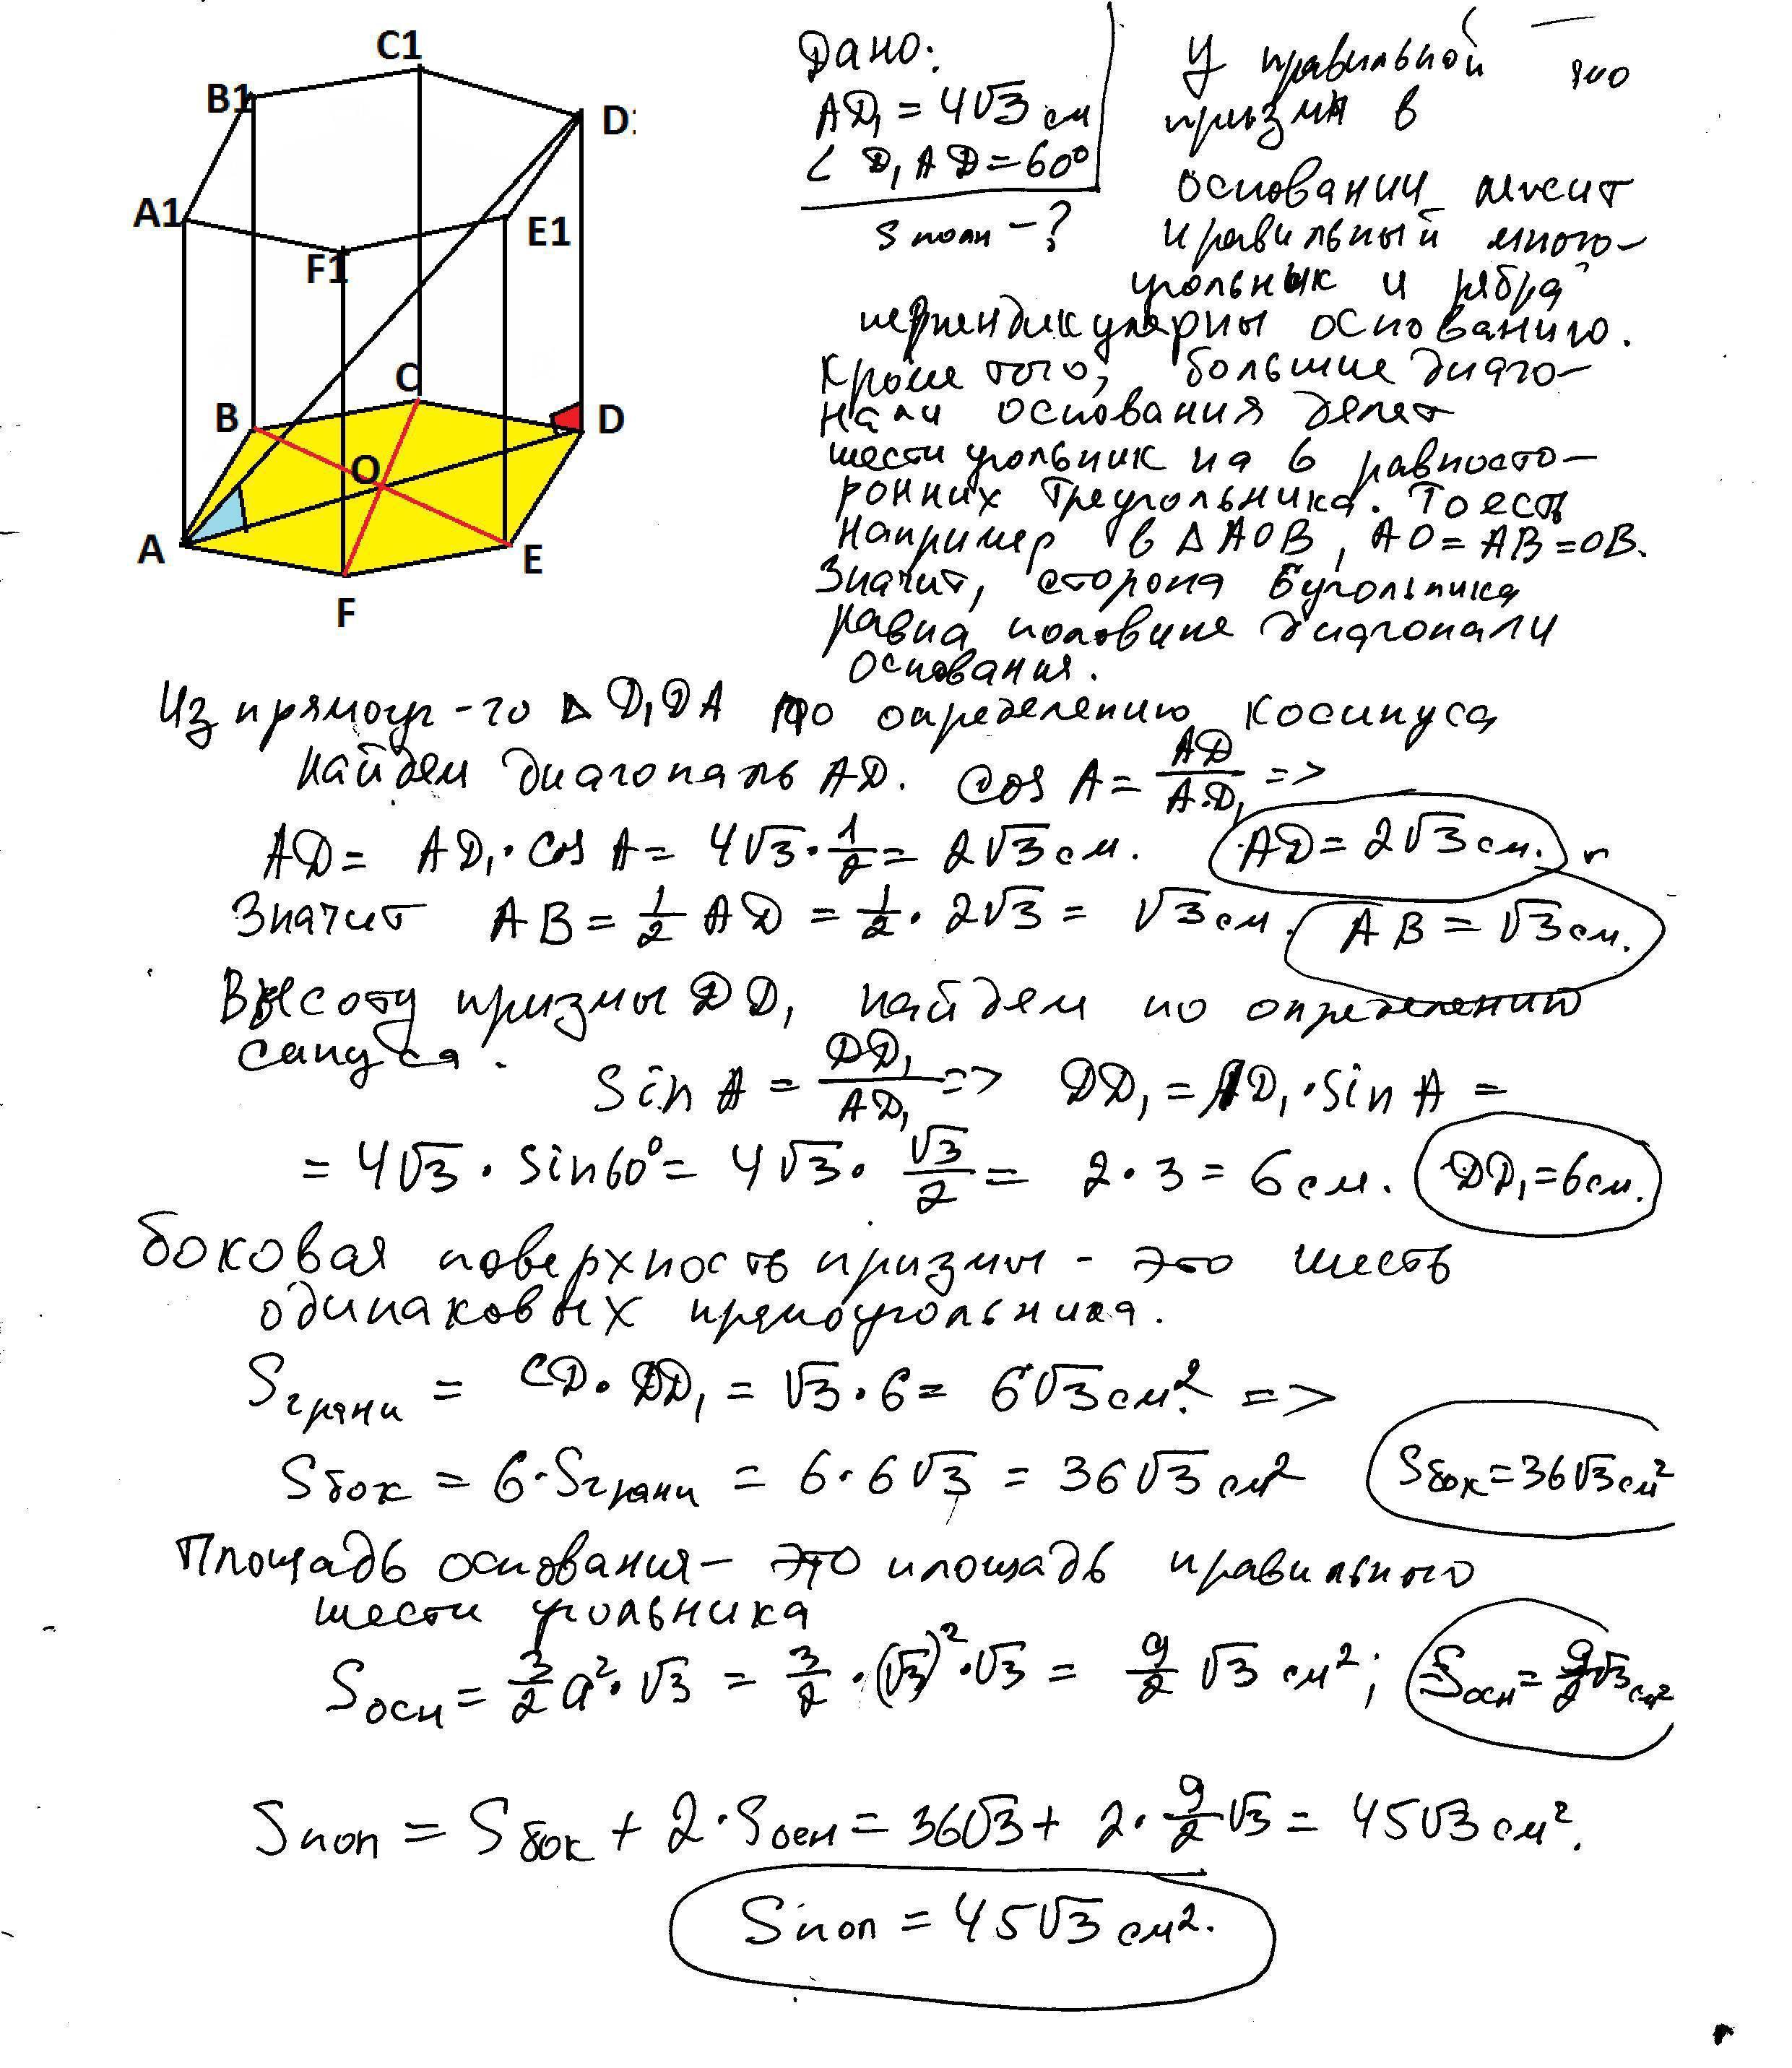 C1
B1
D1
A1
E1
F1
C
B
D
O
A
E
F
Дано:
AD₁ = 4√3 см
∠ D₁AD = 60°
S полн - ?
У правильной
призмы в
основании лежит
правильный много-
угольник и рёбра
перпендикулярны основанию.
Кроме того, большие диаго-
нали основания делят
шестиугольник на 6 равносто-
ронних треугольника. То есть
Например в △AOB, AO = AB = OB.
Значит, сторона 6угольника
равна половине диагонали
основания.
Из прямоуг-го △ D₁DA по определению косинуса
найдем диагональ AD. cos A = AD/AD₁ =>
AD = AD₁ · cos A = 4√3 · 1/2 = 2√3 см. AD = 2√3 см.
Значит AB = 1/2 AD = 1/2 · 2√3 = √3 см. AB = √3 см.
Высоту призмы DD₁ найдем по определению
синуса. sin A = DD₁/AD₁ => DD₁ = AD₁ · sin A =
= 4√3 · sin 60° = 4√3 · √3/2 = 2 · 3 = 6 см. DD₁ = 6 см.
Боковая поверхность призмы - это шесть
одинаковых прямоугольника.
S грани = CD · DD₁ = √3 · 6 = 6√3 см². =>
S бок = 6 · S грани = 6 · 6√3 = 36√3 см² S бок = 36√3 см²
Площадь основания - это площадь правильного
шестиугольника
S осн = 3/2 a² · √3 = 3/2 · (√3)² · √3 = 9/2 √3 см²; S осн = 9/2 √3 см²
S пол = S бок + 2 · S осн = 36√3 + 2 · 9/2 √3 = 45√3 см².
S пол = 45√3 см².